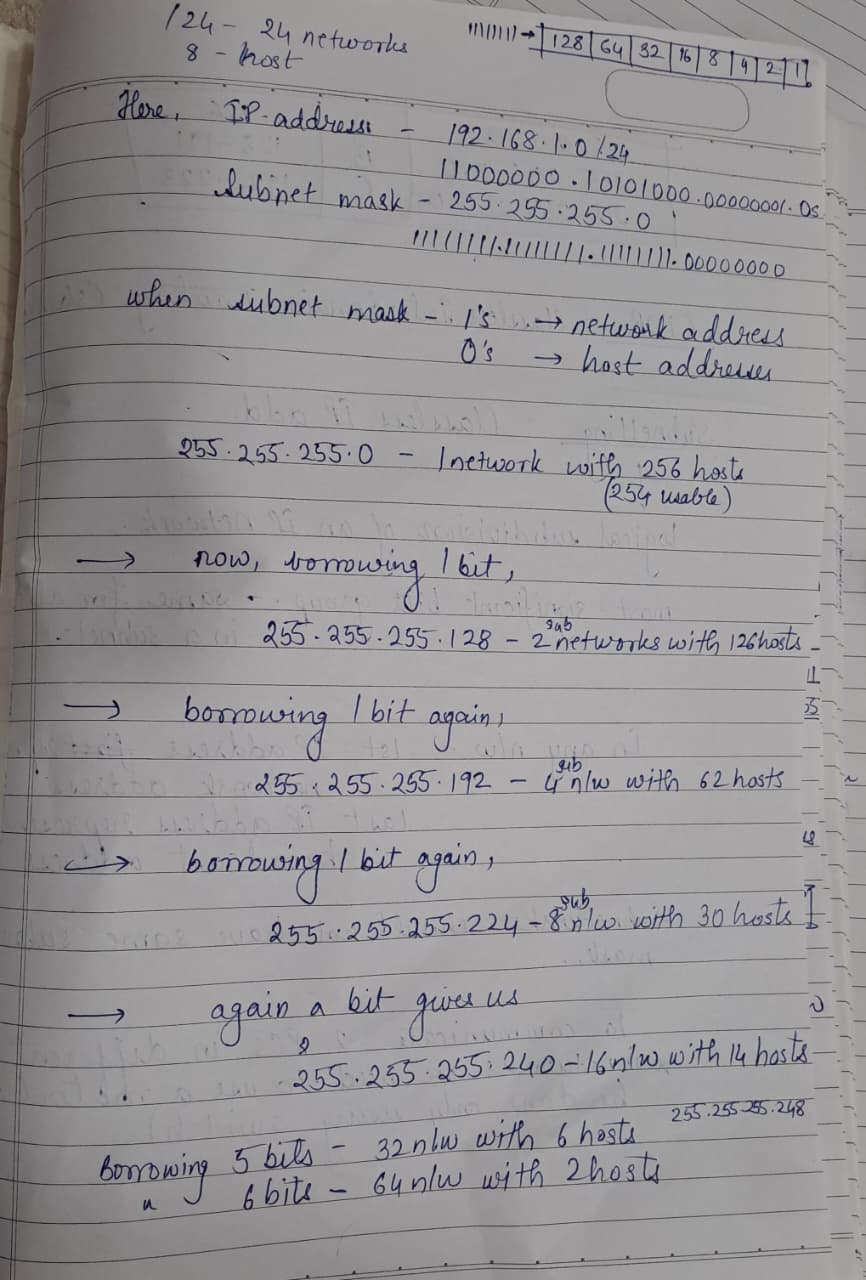 /24 - 24 networks
8 - host
11111111 → 128 64 32 16 8 4 2 1
Here, IP address - 192.168.1.0/24
11000000.10101000.00000001.0s
Subnet mask - 255.255.255.0
11111111.11111111.11111111.00000000
when subnet mask - 1's → network address
0's → host addresses
255.255.255.0 - 1 network with 256 hosts
(254 usable)
→ now, borrowing 1 bit,
255.255.255.128 - 2 sub networks with 126 hosts
→ borrowing 1 bit again,
255.255.255.192 - 4 sub n/w with 62 hosts
→ borrowing 1 bit again,
255.255.255.224 - 8 sub n/w with 30 hosts
→ again a bit gives us
255.255.255.240 - 16 n/w with 14 hosts
255.255.255.248
Borrowing 5 bits - 32 n/w with 6 hosts
" 6 bits - 64 n/w with 2 hosts